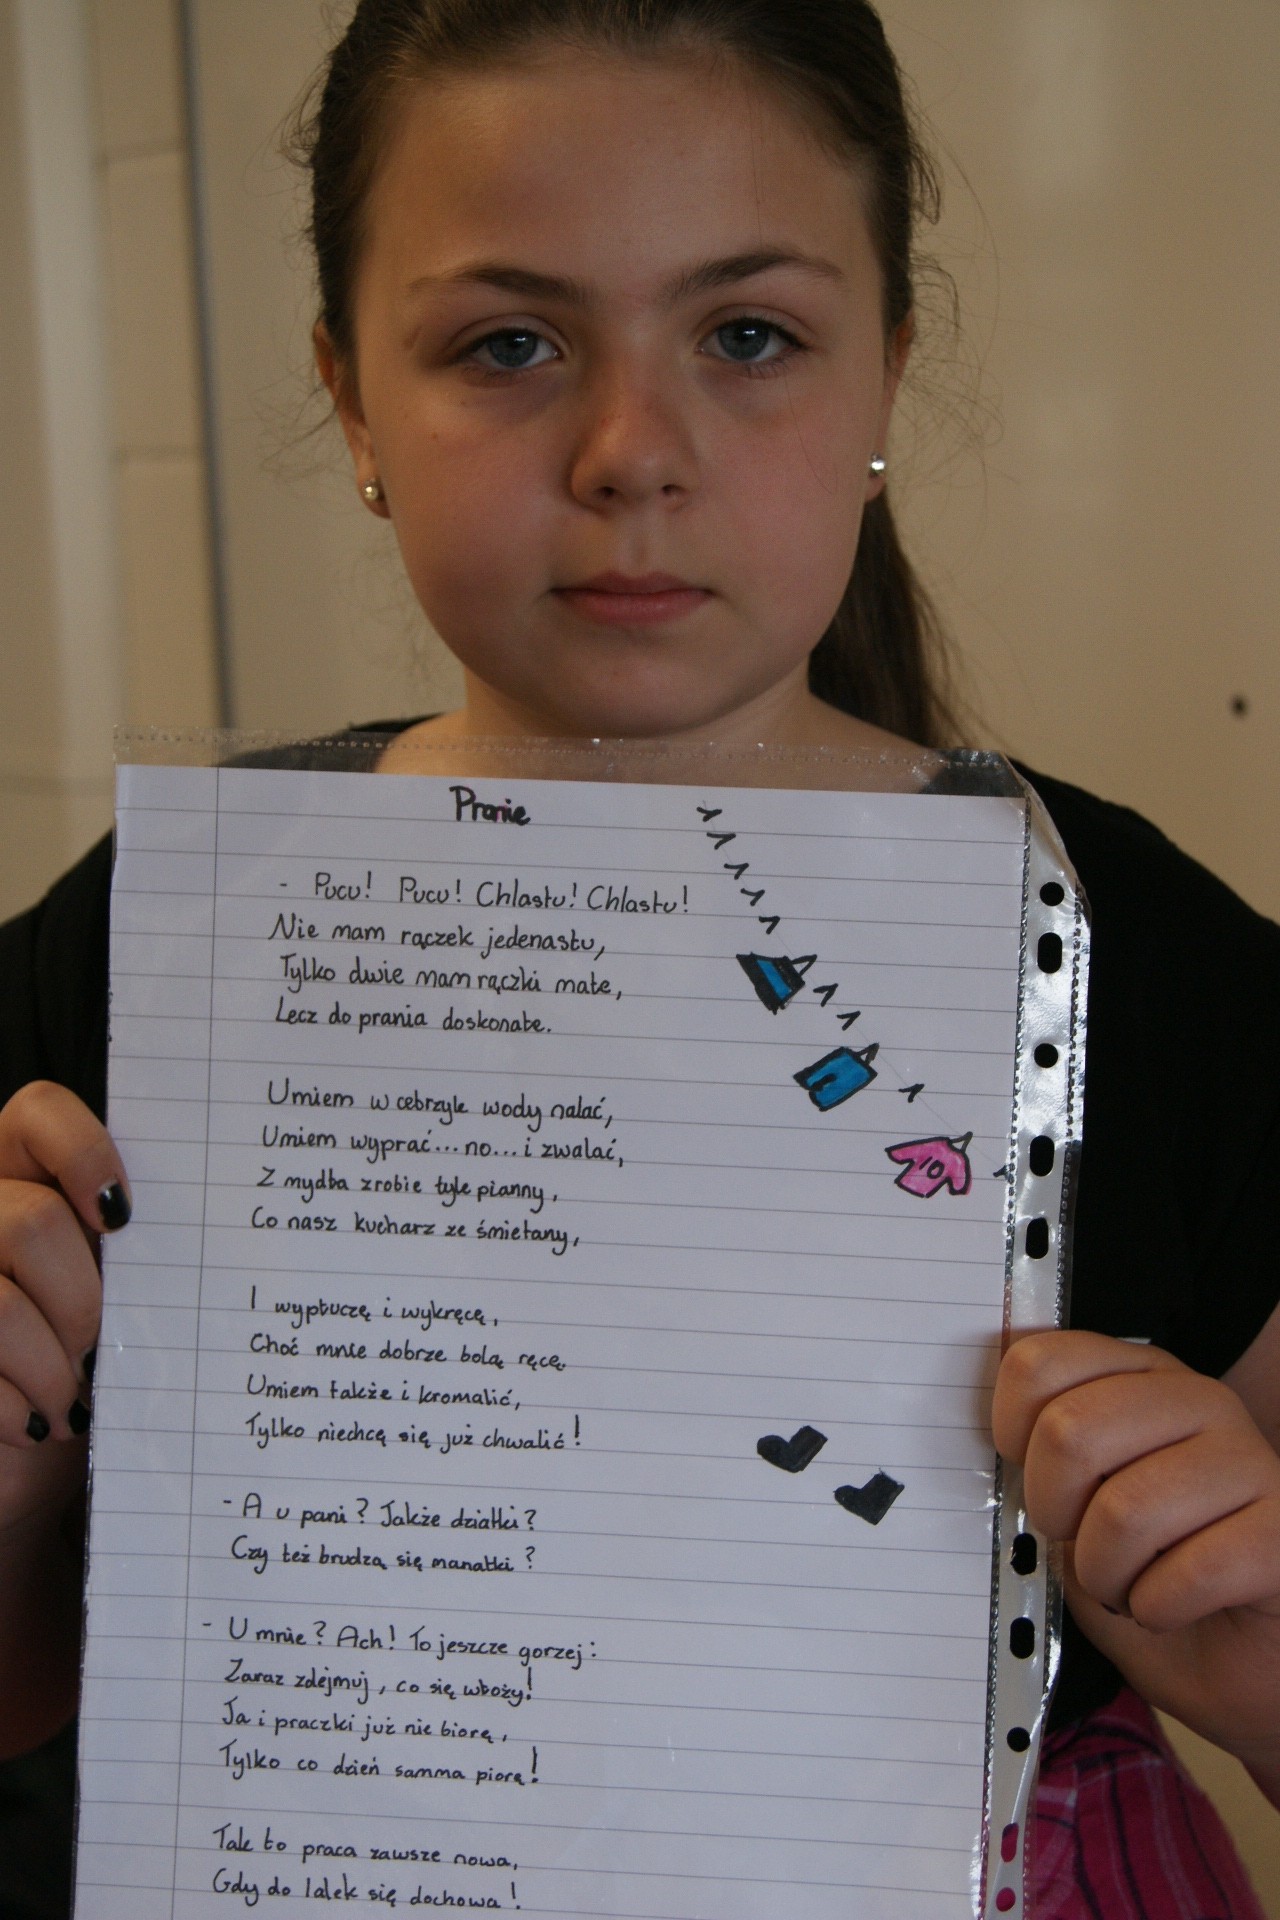 Pranie
- Pucu! Pucu! Chlastu! Chlastu!
Nie mam rączek jedenastu,
Tylko dwie mam rączki małe,
Lecz do prania doskonałe.
Umiem w cebrzyk wody nalać,
Umiem wyprać...no...i zwalać,
Z mydła zrobie tyle pianny,
Co nasz kucharz ze śmietany,
I wypłuczę i wykręcę,
Choć mnie dobrze bolą ręcę.
Umiem także i kromalić,
Tylko niechcę się już chwalić!
- A u pani? Jakże dziatki?
Czy też brudzą się manatki?
- U mnie? Ach! To jeszcze gorzej:
Zaraz zdejmuj, co się włoży!
Ja i praczki już nie biorę,
Tylko co dzień samma piorę!
Tak to praca zawsze nowa,
Gdy do lalek się dochowa!
10